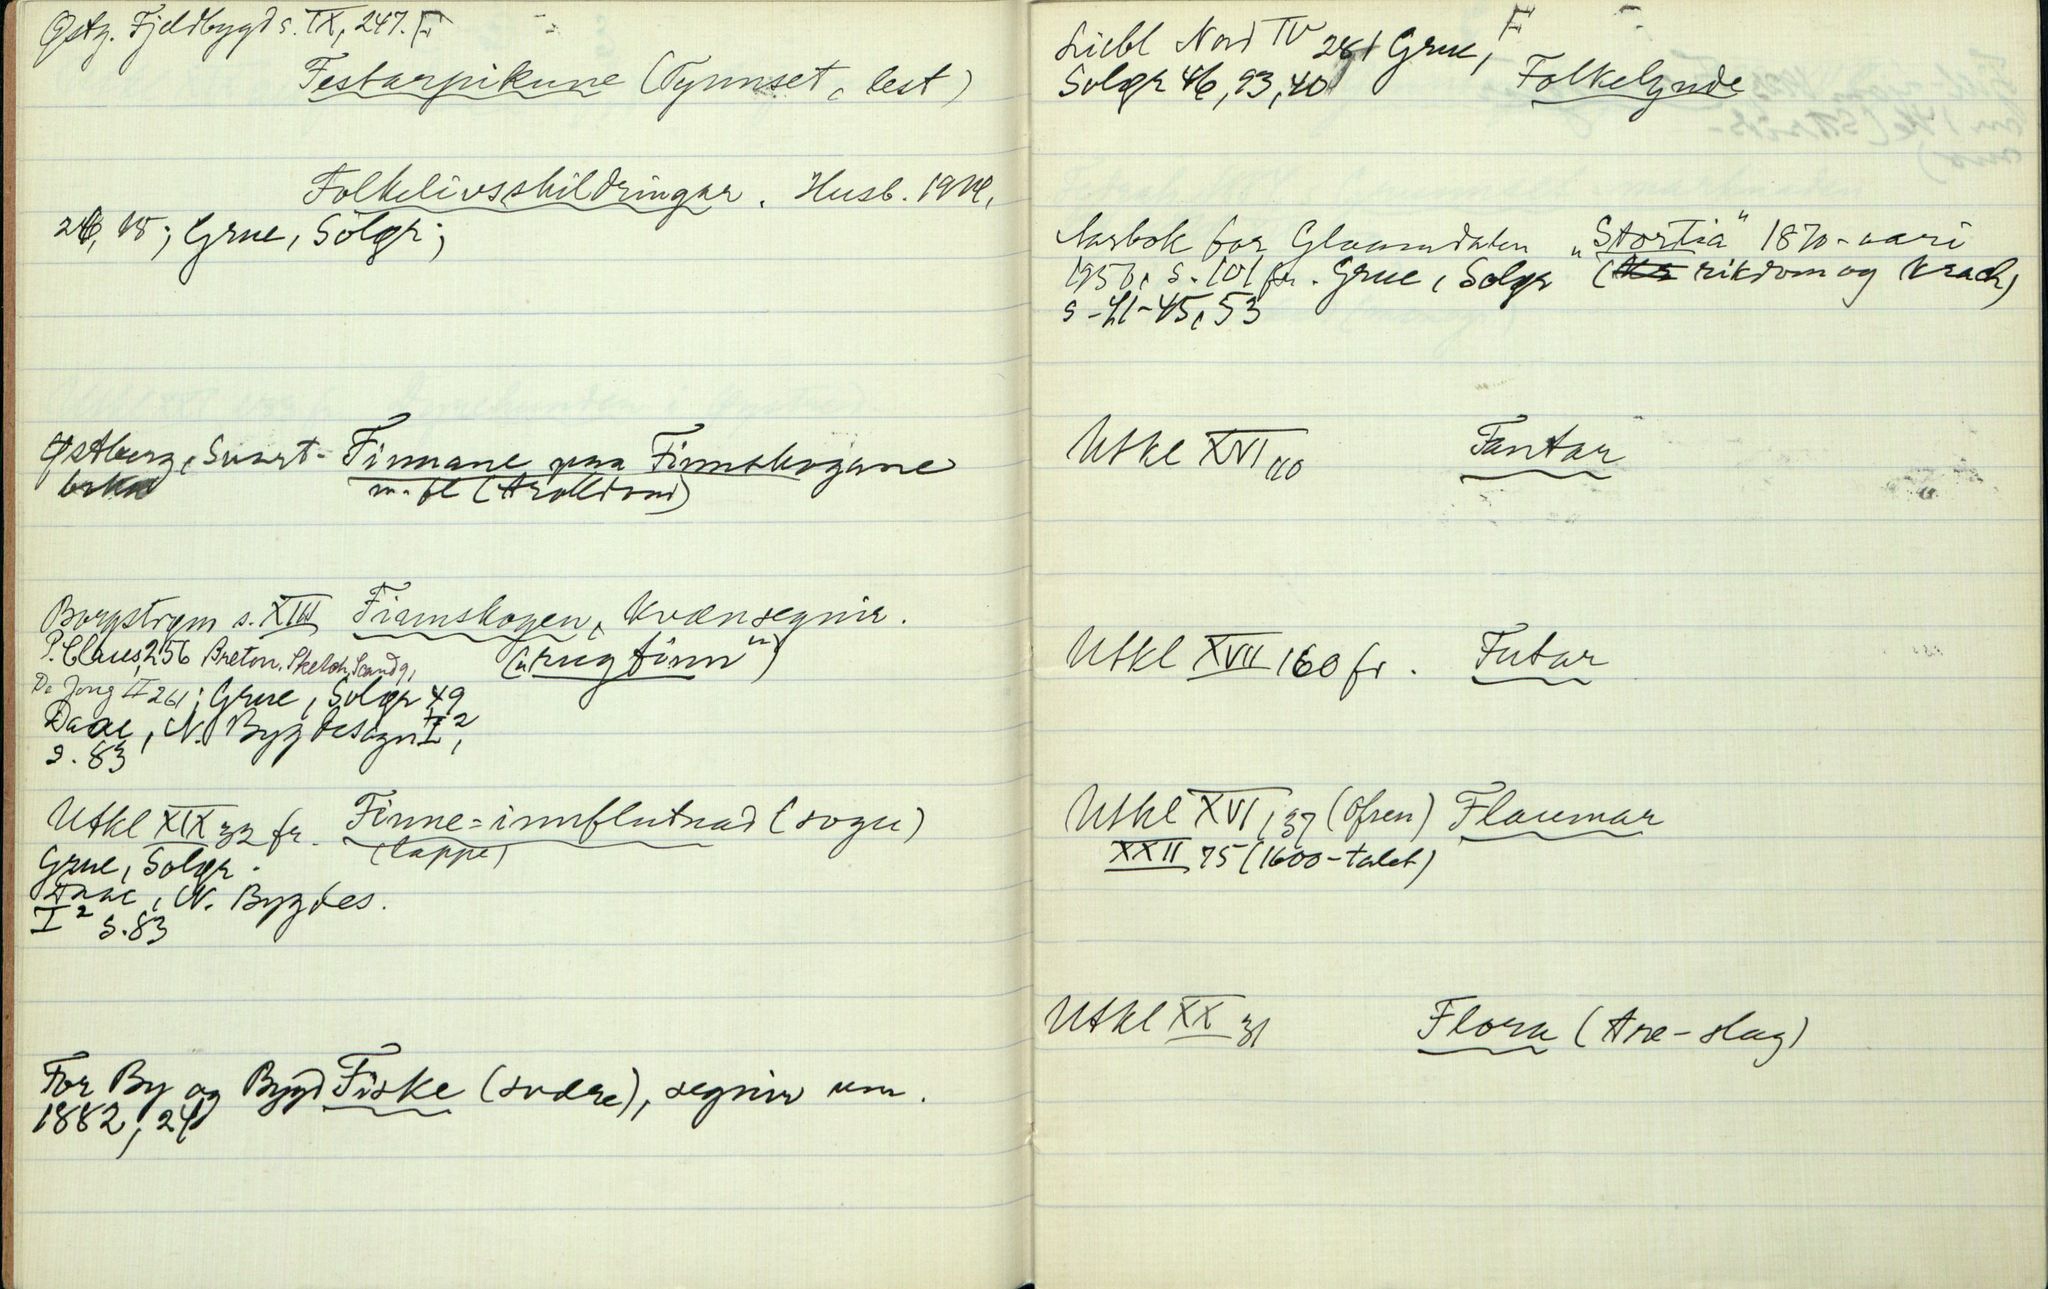 Østg. Fjeldbygd s. IX, 247. F
Festarpikune (Tynnset, lest)
Folkelivsskildringar. Husb. 1914,
24, 18; Grue, Solør;
Østberg, Svart- Finnane paa Finnskogane
boka m. fl (trolldom)
Borgstrøm s. XIII Finnskogen, Kvænsegnir.
P. Claus, 256 Breton, Sketch. Scand. („rugfinn")
De Jong II 261; Grue, Solør 49
Daae, N. Bygdesagn I²,
s. 83
Utkl XIX 32 fr. Finne=innflutnad (sogu)
Grue, Solør. (lappe)
Daae, N. Bygdes.
I² s. 83
For By og Bygd Fiske (svære), segnir um.
1882, 24
F
Liebl Nord IV 281 Grue,
Solør 46, 93, 40 Folkelynde
Aarbok for Glaamdalen „Stortia" 1870-aari
1950, s. 101 fr. Grue, Solør (rikdom og krach)
s-41-45, 53
Utkl XVI 110 Fantar
Utkl XVII 160 fr. Futar
Utkl XVI, 37 (Ofsen) Flaumar
XXII 75 (1600-talet)
Utkl XX 31 Flora (tre-slag)